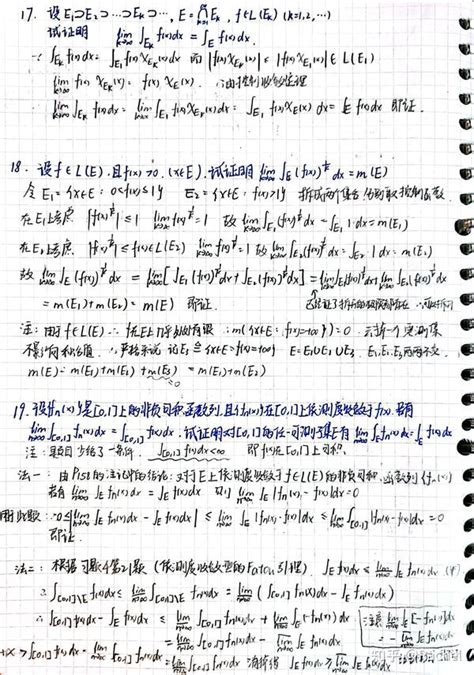 17. 设 E₁⊃E₂⊃…⊃E_k⊃…, E=⋂_{k=1}^{∞}E_k, f∈L(E_k) (k=1,2,…)
试证明 lim_{k→∞} ∫_{E_k} f(x)dx = ∫_E f(x)dx.
∵ ∫_{E_k} f(x)dx = ∫_{E₁} f(x)χ_{E_k}(x)dx 而 |f(x)χ_{E_k}(x)| ≤ |f(x)χ_{E₁}(x)| ∈ L(E₁)
lim_{k→∞} f(x)χ_{E_k}(x) = f(x)χ_E(x). 由控制收敛定理
lim_{k→∞} ∫_{E_k} f(x)dx = lim_{k→∞} ∫_{E₁} f(x)χ_{E_k}(x)dx = ∫_{E₁} f(x)χ_E(x)dx = ∫_E f(x)dx 即证.
18. 设 f∈L(E), 且 f(x)>0, (x∈E), 试证明 lim_{k→∞} ∫_E (f(x))^{1/k} dx = m(E)
令 E₁={x∈E: 0<f(x)≤1} E₂={x∈E: f(x)>1} 拆成两个集合分别取控制函数
在E₁上考虑 |f(x)^{1/k}| ≤ 1 lim_{k→∞} f(x)^{1/k} = 1 故 lim_{k→∞} ∫_{E₁} (f(x))^{1/k} dx = ∫_{E₁} 1·dx = m(E₁)
在E₂上考虑 |f(x)^{1/k}| ≤ f(x) ∈ L(E₂) lim_{k→∞} f(x)^{1/k} = 1 故 lim_{k→∞} ∫_{E₂} (f(x))^{1/k} dx = ∫_{E₂} 1·dx = m(E₂)
故 lim_{k→∞} ∫_E (f(x))^{1/k} dx = lim_{k→∞} [∫_{E₁} (f(x))^{1/k} dx + ∫_{E₂} (f(x))^{1/k} dx] = lim_{k→∞} ∫_{E₁} (f(x))^{1/k} dx + lim_{k→∞} ∫_{E₂} (f(x))^{1/k} dx
= m(E₁) + m(E₂) = m(E) 即证.
注: 由于 f∈L(E) ∴ f在E上几乎处处有限 ∴ m({x∈E: f(x)=+∞})=0 去掉一个零测集
不影响积分值. 严格来说 记 E₃≜{x∈E: f(x)=+∞} E=E₁∪E₂∪E₃, E₁,E₂,E₃两两不交
m(E) = m(E₁)+m(E₂)+m(E₃) = m(E₁)+m(E₂)
19. 设{f_n(x)}是[0,1]上的非负可积函数列, 且{f_n(x)}在[0,1]上依测度收敛于f(x), 若有
lim_{n→∞} ∫_{[0,1]} f_n(x)dx = ∫_{[0,1]} f(x)dx, 试证明对[0,1]的任一可测子集E有 lim_{n→∞} ∫_E f_n(x)dx = ∫_E f(x)dx
注: 题目少给了一条件, ∫_{[0,1]} f(x)dx<∞ 即f(x)在[0,1]上可积.
法一: 由 的注记中的结论: 对于E上依测度收敛于f∈L(E)的非负可积函数列{f_n(x)}
若有 lim_{n→∞} ∫_E f_n(x)dx = ∫_E f(x)dx 则 lim_{n→∞} ∫_E |f_n(x)-f(x)|dx = 0
用此题: ∵ 0 ≤ |∫_E f_n(x)dx - ∫_E f(x)dx| ≤ lim_{n→∞} ∫_E |f_n(x)-f(x)|dx ≤ lim_{n→∞} ∫_{[0,1]} |f_n(x)-f(x)|dx = 0
即证.
法二: 根据习题4第21题 (依测度收敛型的Fatou引理). ∫_E f(x)dx ≤ lim_{n→∞} ∫_E f_n(x)dx
∴ ∫_{[0,1]\E} f(x)dx ≤ lim_{n→∞} ∫_{[0,1]\E} f_n(x)dx = lim_{n→∞} (∫_{[0,1]} f_n(x)dx - ∫_E f_n(x)dx)
∴ ∫_{[0,1]} f(x)dx - ∫_E f(x)dx ≤ lim_{n→∞} ∫_{[0,1]} f_n(x)dx + lim_{n→∞} ∫_E [-f_n(x)]dx
注意 lim_{n→∞} ∫_E [-f_n(x)]dx
= lim_{n→∞} ∫_{[0,1]} f_n(x)dx - lim_{n→∞} ∫_E f_n(x)dx
= -lim_{n→∞} ∫_E f_n(x)dx
∫_{[0,1]} f(x)dx = lim_{n→∞} ∫_{[0,1]} f_n(x)dx